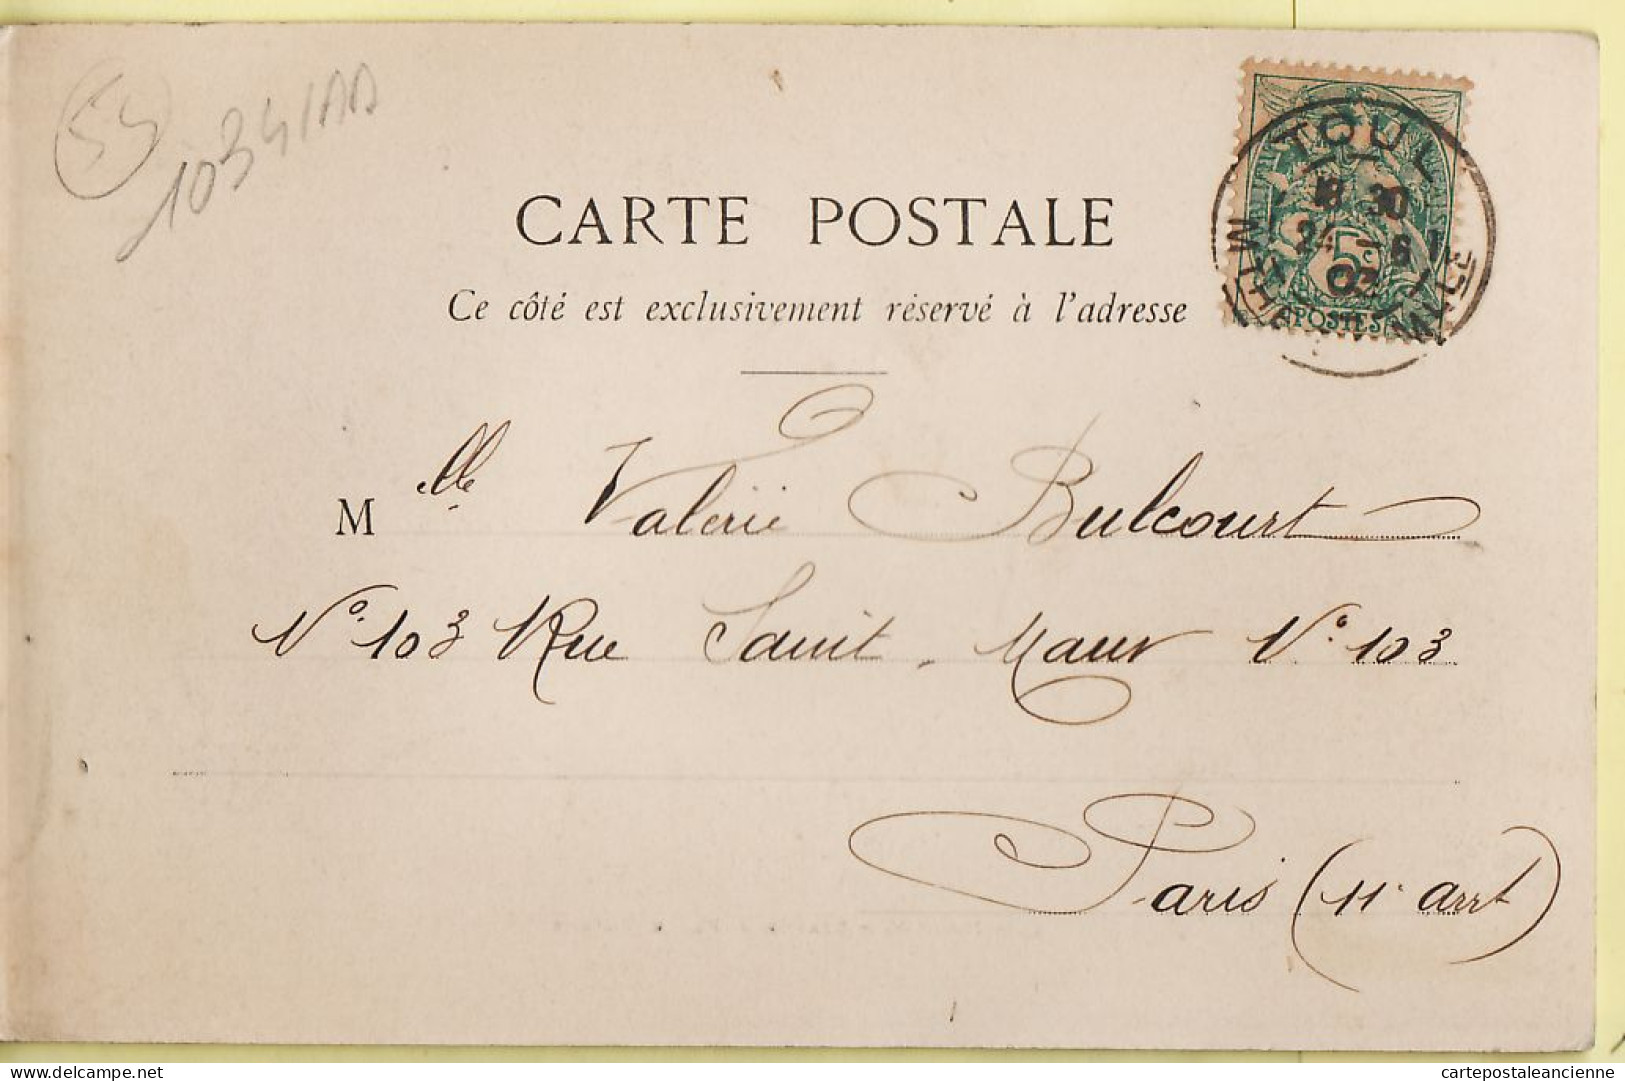 54
10341AA
CARTE POSTALE
Ce côté est exclusivement réservé à l'adresse
TOUL
18 30
24 - 6
03
MTHE ET MLLE
5c
POSTES
Mlle Valérie Bulcourt
N° 103 Rue Saint-Maur N° 103
Paris (11e arrt)
delcampe.net
cartepostaleancienne